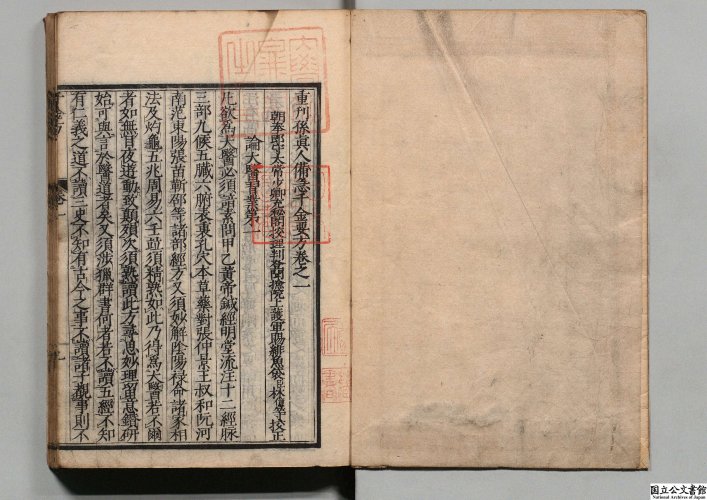 重刊孫真人備急千金要方卷之一
朝奉郎守太常少卿充秘閣校理判登聞檢院上護軍賜緋魚袋臣林億等校正
論大醫習業第一
凡欲爲大醫必須諳素問甲乙黃帝鍼經明堂流注十二經脉
三部九候五臟六腑表裏孔穴本草藥對張仲景王叔和阮河
南范東陽張苗靳邵等諸部經方又須妙解陰陽祿命諸家相
法及灼龜五兆周易六壬並須精熟如此乃得爲大醫若不爾
者如無目夜遊動致顛殞次須熟讀此方尋思妙理留意鑽研
始可與言於醫道者矣又須涉獵群書何者若不讀五經不知
有仁義之道不讀三史不知有古今之事不讀諸子覩事則不
国立公文書館
National Archives of Japan